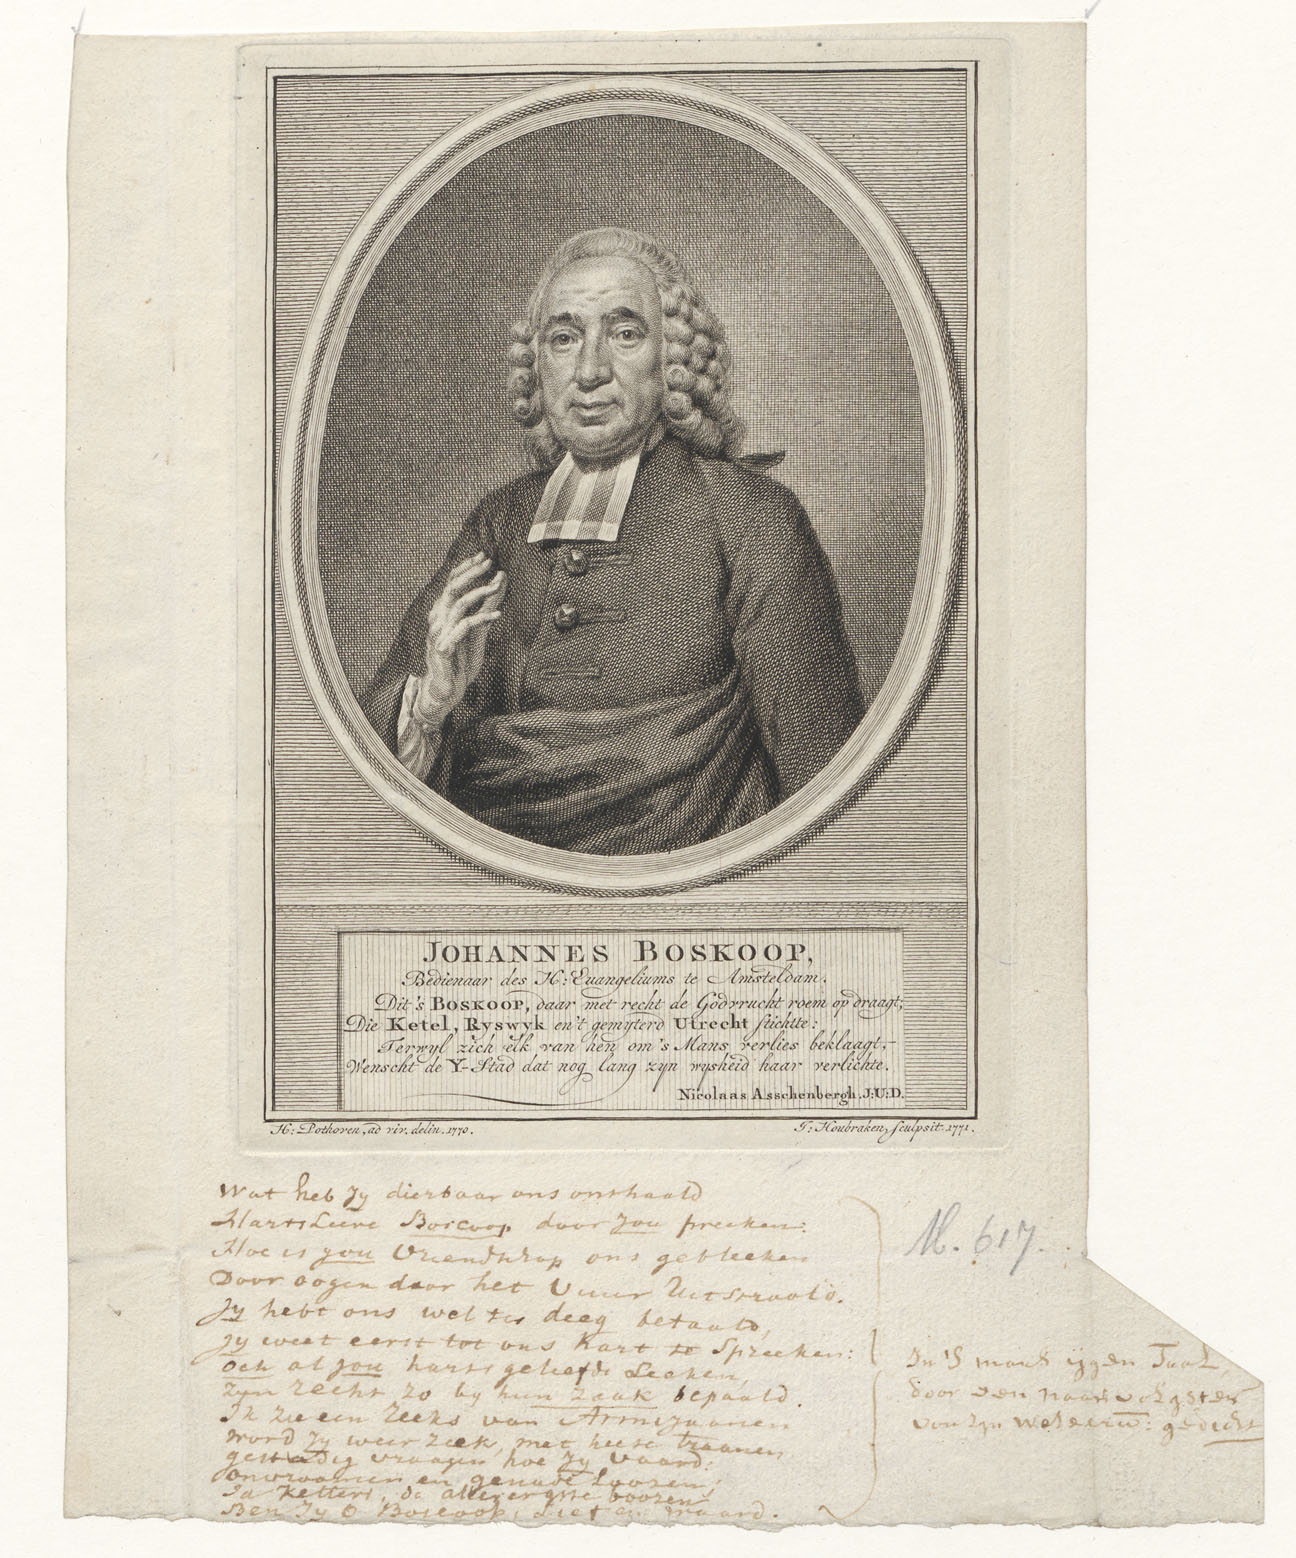 JOHANNES BOSKOOP,
Bedienaar des H: Euangeliums te Amsteldam.
Dit's BOSKOOP, daar met recht de Godvrucht roem op draagt;
Die Ketel, Ryswyk en 't gemyterd Utrecht stichtte:
Terwyl zich elk van hen om 's Mans verlies beklaagt,
Wenscht de Y-Stad dat nog lang zyn wysheid haar verlichte.
Nicolaas Asschenbergh. J:U:D.
H: Pothoven, ad viv. delin. 1770.
J: Houbraken, sculpsit. 1771.
Wat heb Jy dierbaar ons onthaald
Harts Boscoop door jou preeken:
Hoe is jou Vriendschap ons gebleeken
Door oogen daar het Vuur Uitstraald.
Jy hebt ons wel ter deeg betaald,
Jy weet eerst tot ons Hart te Spreeken:
och al jou harts geliefde Leeken,
Zyn recht zo by hun Zaak bepaald.
Ik zie een Reeks van Armijaanen
word Jy weer ziek, met heete traanen
gestadig vraagen hoe Jy Vaard:
onvroomen en
Ja Ketters, de allerergste boozen
Ben Jy O Boscoop, Lief en Waard.
M. 617.
In 's mans eygen Taal,
door den
van zyn gedicht